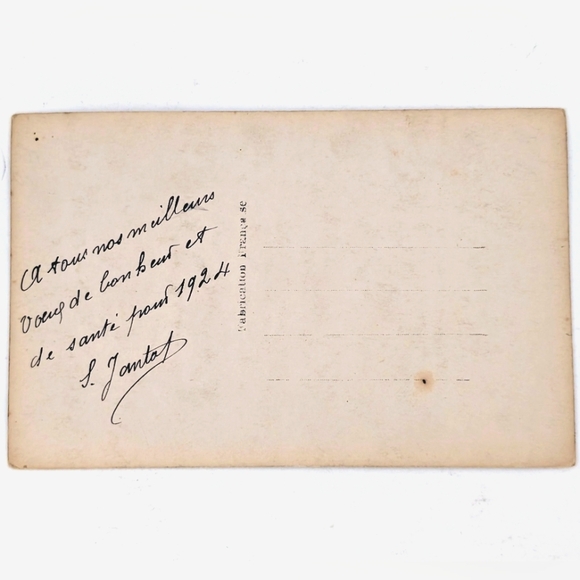 A tous nos meilleurs
voeux de bonheur et
de santé pour 1924
S. Jantot
Fabrication Française